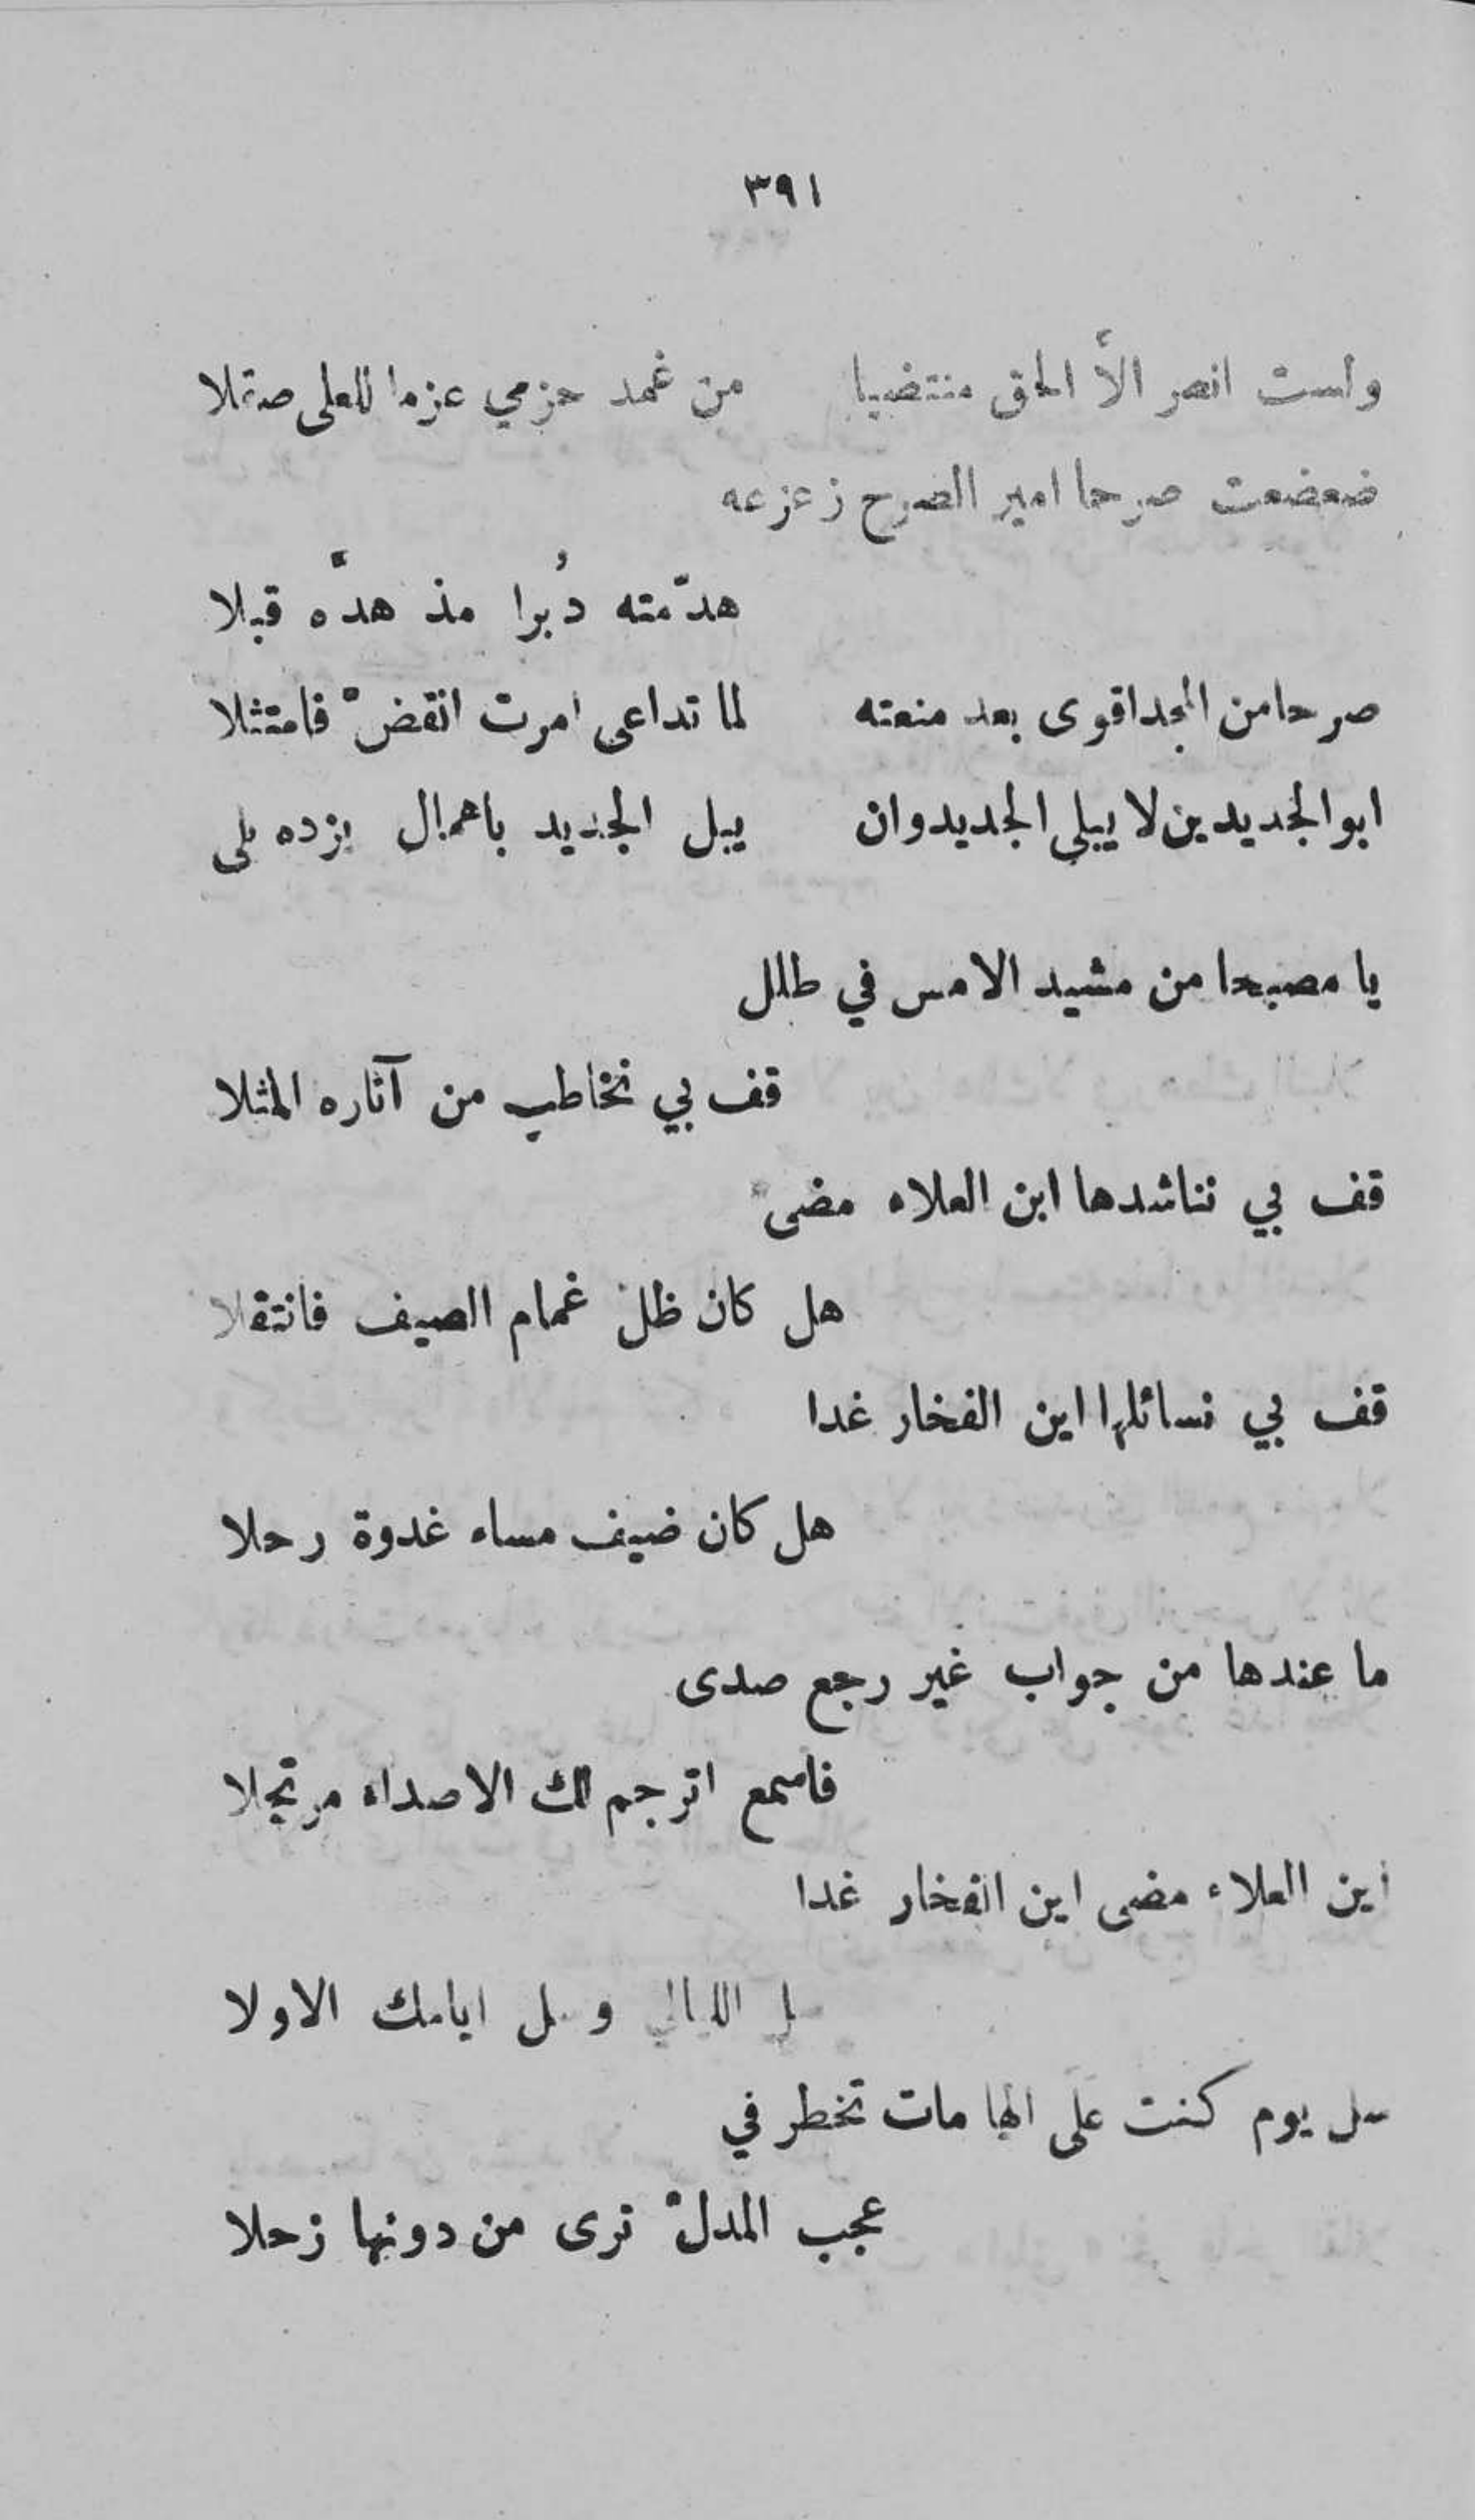 ٣٩١
ولست انصر الاَّ الحق منتضيا من غمد حزمي عزما للعلى صقلا
ضعضعت صرحا امير الصرح زعزعه
هدّمته دُبرا مذ هدَّه قبلا
صرحا من المجد اقوى بعد منعته لما تداعى امرت انقضْ فامتثلا
ابو الجديدين لا يبلي الجديد وان يبل الجديد باهمال يزده بلى
يا مصبحا من مشيد الامس في طلل
قف بي نخاطب من آثاره المثلا
قف بي نناشدها ابن العلاء مضى
هل كان ظل غمام الصيف فانتقلا
قف بي نسائلها اين الفخار غدا
هل كان ضيف مساء غدوة رحلا
ما عندها من جواب غير رجع صدى
فاسمع اترجم لك الاصداء مرتجلا
اين العلاء مضى اين الفخار غدا
سل الليالي وسل ايامك الاولا
سل يوم كنت على الهامات تخطر في
عجب المدلْ ترى من دونها زحلا